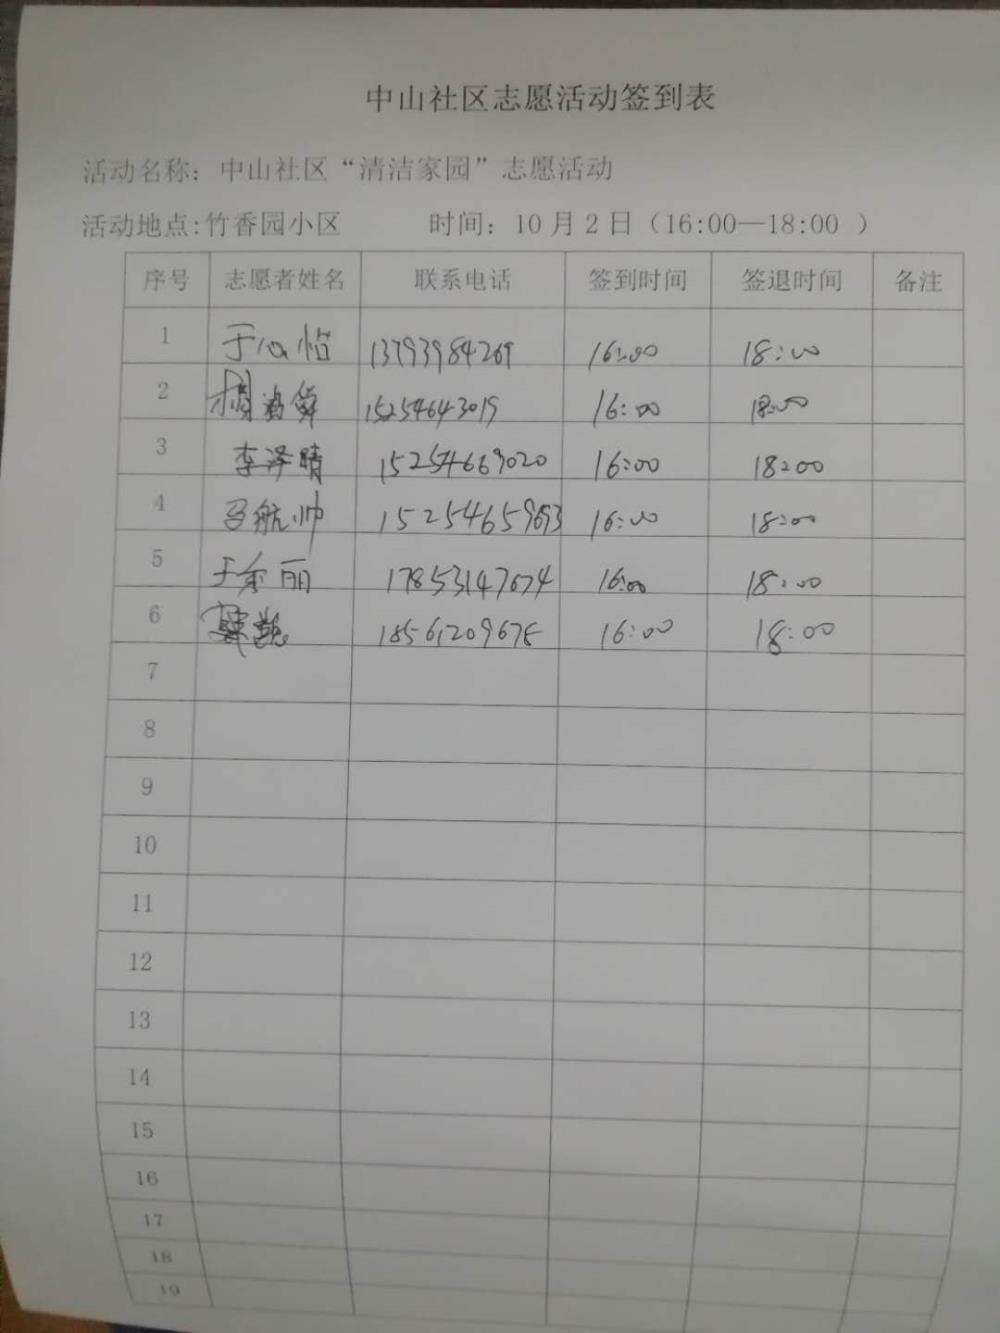 中山社区志愿活动签到表
活动名称：中山社区“清洁家园”志愿活动
活动地点:竹香园小区 时间：10月2日（16:00—18:00 ）
序号 志愿者姓名 联系电话 签到时间 签退时间 备注
1 于心怡 13793984269 16:00 18:00
2 15254643019 16:00 18:00
3 李泽晴 15254669020 16:00 18:00
4 马航帅 15254659693 16:00 18:00
5 于秀丽 17853147674 16:00 18:00
6 18561209678 16:00 18:00
7
8
9
10
11
12
13
14
15
16
17
18
19